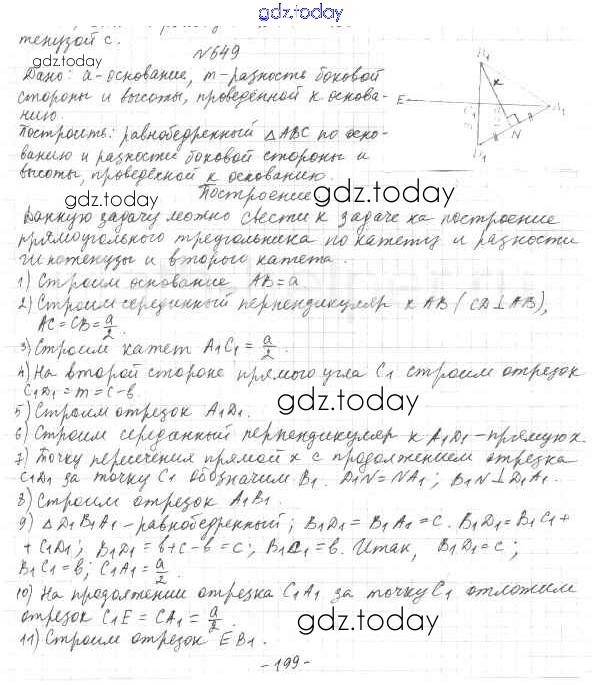 gdz.today
тенузой c.
№649
Дано: a-основание, m-разность боковой
стороны и высоты, проведённой к основа-
нию.
Построить: равнобедренный △ABC по осно-
ванию и разности боковой стороны и
высоты, проведённой к основанию.
B1
x
E
C1
A1
N
D1
gdz.today
gdz.today
gdz.today
Построение
Данную задачу можно свести к задаче на построение
прямоугольного треугольника по катету и разности
гипотенузы и второго катета.
1) Строим основание AB=a
2) Строим серединный перпендикуляр к AB (CD⊥AB),
AC=CB=a/2.
3) Строим катет A1C1=a/2.
4) На второй стороне прямого угла C1 строим отрезок
C1D1=m=c-b.
gdz.today
5) Строим отрезок A1D1.
6) Строим серединный перпендикуляр к A1D1-прямую x.
7) Точку пересечения прямой x с продолжением отрезка
C1D1 за точку C1 обозначим B1. D1N=NA1; B1N⊥D1A1.
8) Строим отрезок A1B1.
9) △D1B1A1-равнобедренный; B1D1=B1A1=c. B1D1=B1C1+
+C1D1; B1D1=b+c-b=c; B1C1=b. Итак, B1D1=c;
B1C1=b; C1A1=a/2.
10) На продолжении отрезка C1A1 за точку C1 отложим
отрезок C1E=CA1=a/2.
gdz.today
11) Строим отрезок EB1.
-199-
gdz.today